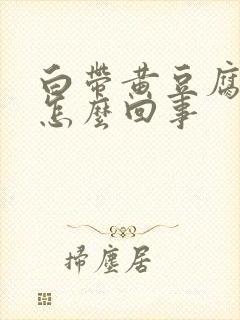 白帶黄豆腐
怎麼回事
掃塵居